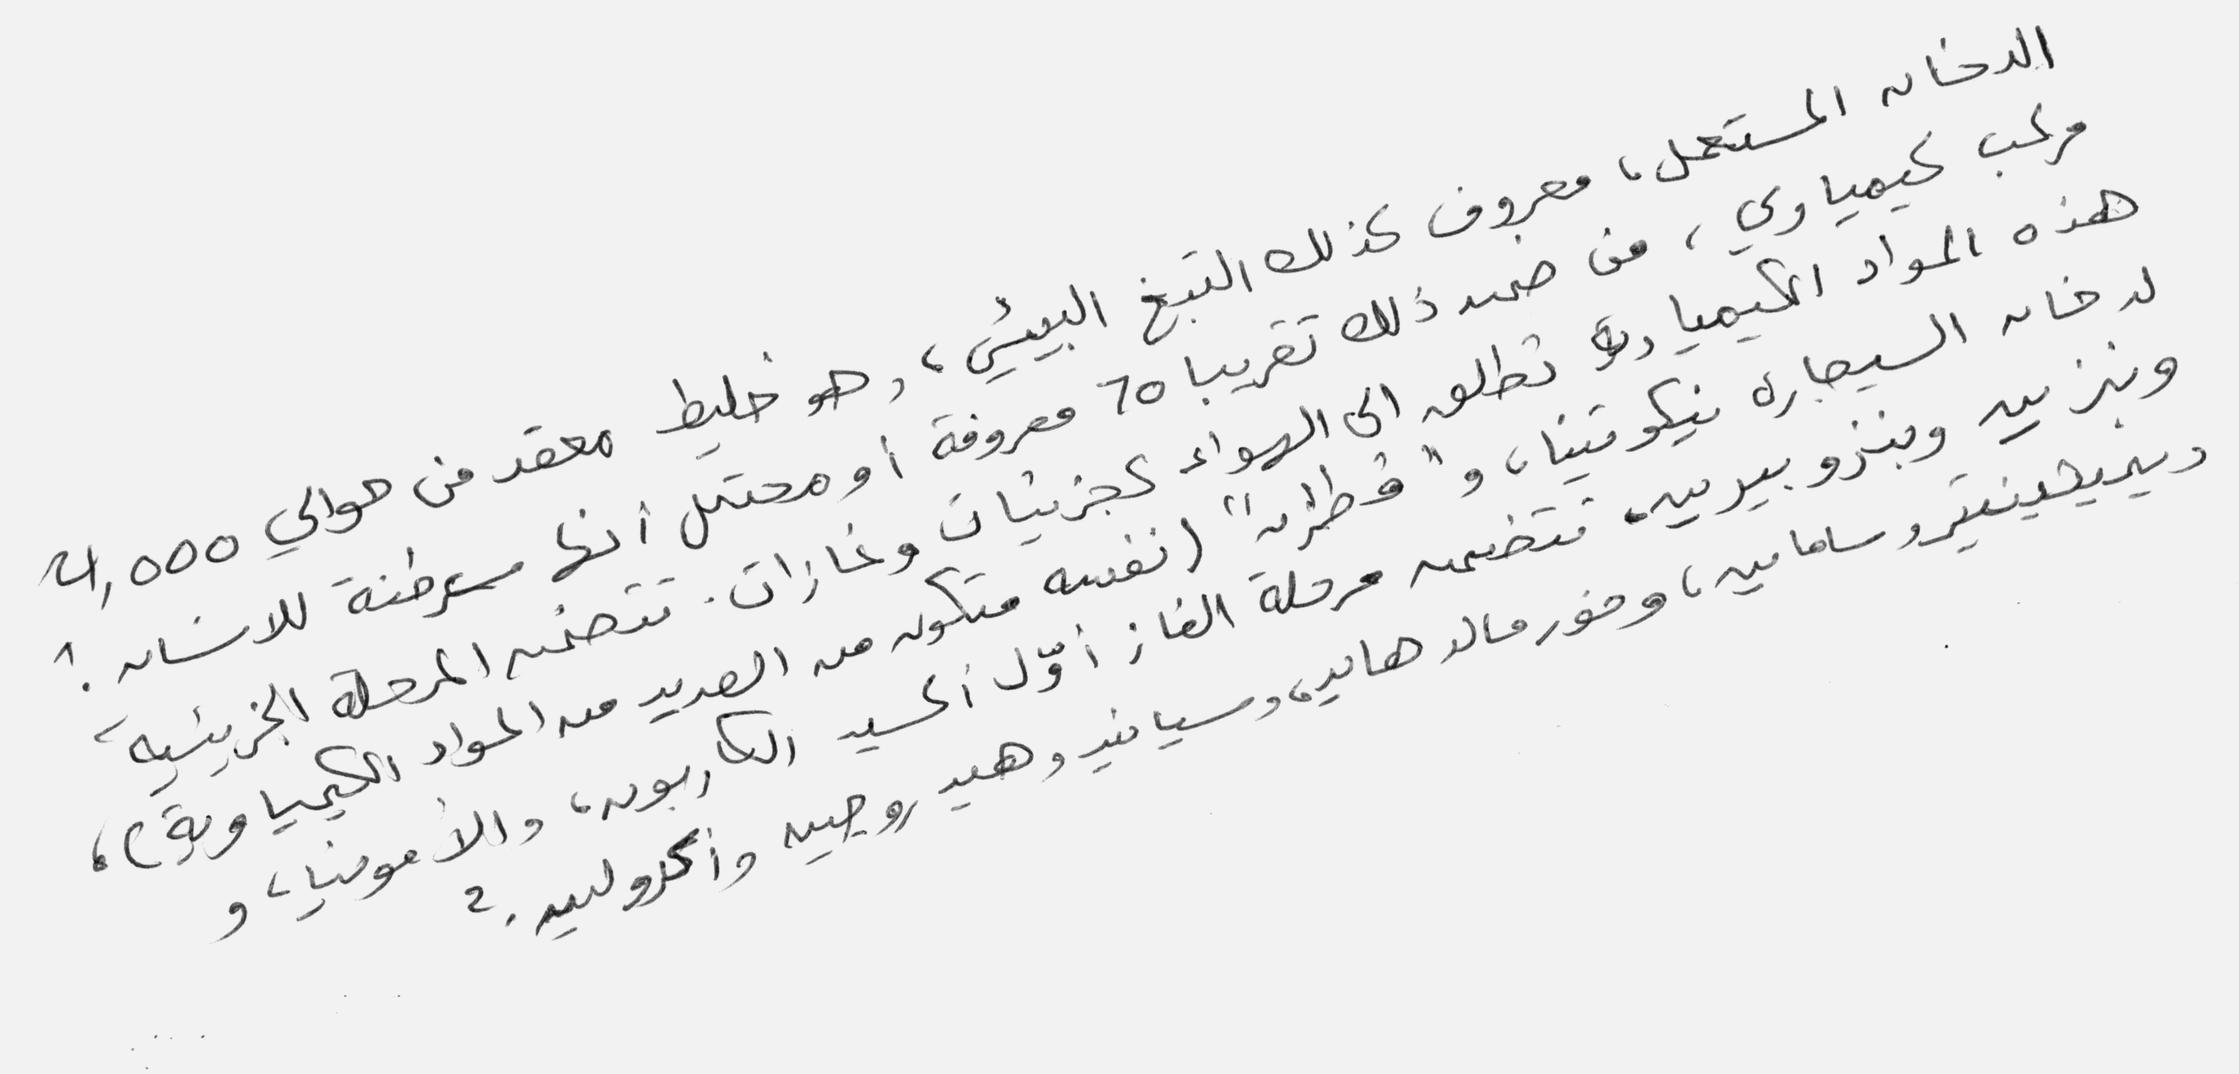 الدخان المستعمل، معروف كذلك التبغ البيئي، وهو خليط معقد من حوالي 4,000
مركب كيمياوي، من ضمن ذلك تقريبا 70 معروفة أو محتمل أنها مسرطنة للانسان.1
هذه المواد الكيمياوية تطلق الى الهواء كجزيئات وغازات. تتضمن المرحلة الجزيئية
لدخان السيجارة نيكوتينا، و"قطران" (نفسه متكون من العديد من المواد الكيمياوية)،
وبنزين وبنزوبيرين. تتضمن مرحلة الغاز أوّل أكسيد الكاربون، والأمونيا، و
ديميثيلنيتروسامين، وفورمالدهايد، وسيانيد وهيدروجين وأكرولين.2